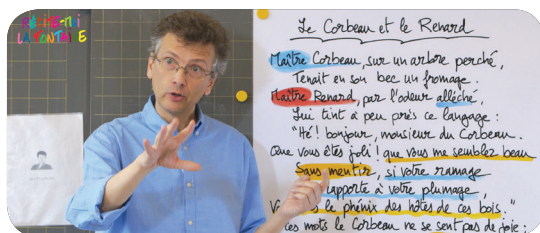 RÉCITE-MOI
LA FONTAINE
Le Corbeau et le Renard
Maître Corbeau, sur un arbre perché,
Tenait en son bec un fromage.
Maître Renard, par l'odeur alléché,
Lui tint à peu près ce langage :
"Hé ! bonjour, monsieur du Corbeau.
Que vous êtes joli ! que vous me semblez beau
Sans mentir, si votre ramage
rapporte à votre plumage,
le phénix des hôtes de ces bois."
mots le Corbeau ne se sent pas de joie ;